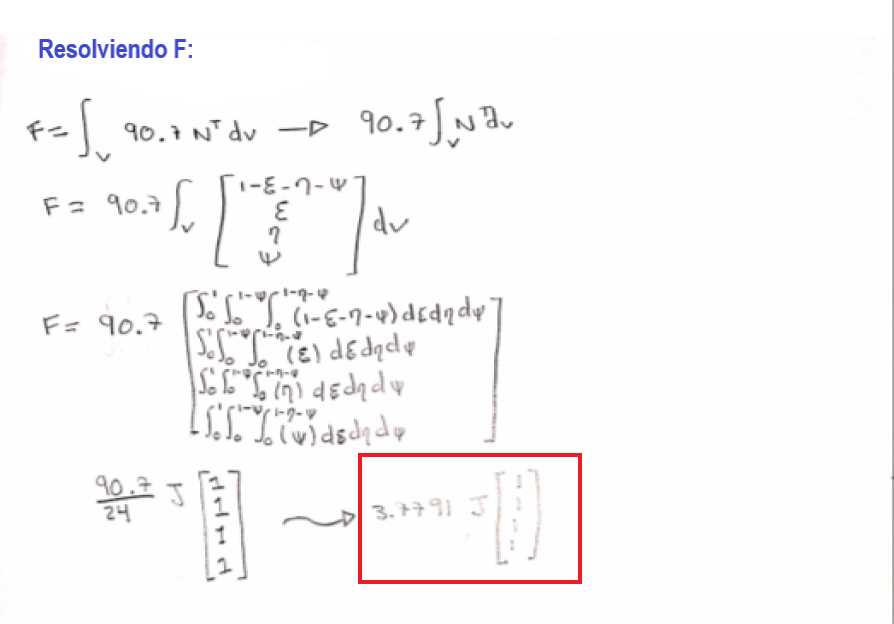 Resolviendo F:
F = ∫_v 90.7 Nᵀ dv → 90.7 ∫_v Nᵀ dv
F = 90.7 ∫_v [1-ε-η-ψ
ε
η
ψ] dv
F = 90.7 [∫₀¹ ∫₀^(1-ψ) ∫₀^(1-η-ψ) (1-ε-η-ψ) dε dη dψ
∫₀¹ ∫₀^(1-ψ) ∫₀^(1-η-ψ) (ε) dε dη dψ
∫₀¹ ∫₀^(1-ψ) ∫₀^(1-η-ψ) (η) dε dη dψ
∫₀¹ ∫₀^(1-ψ) ∫₀^(1-η-ψ) (ψ) dε dη dψ]
90.7/24 J [1 1 1 1] → 3.7791 J [1 1 1 1]